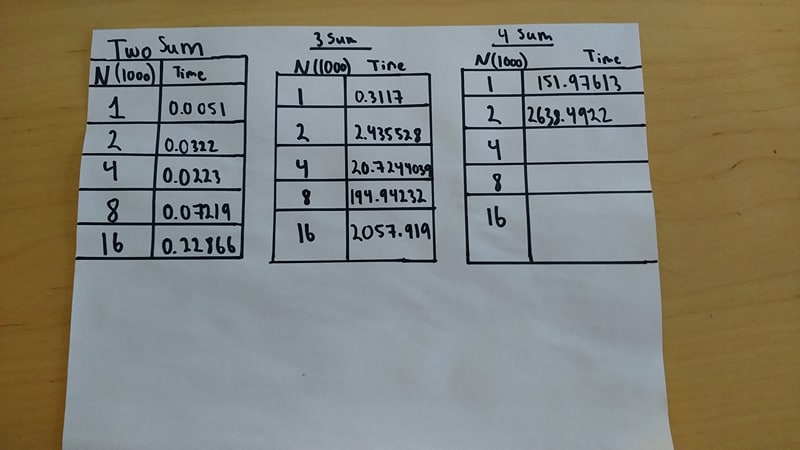 Two Sum
N(1000) Time
1 0.0051
2 0.0322
4 0.0223
8 0.07219
16 0.22866
3 Sum
N(1000) Time
1 0.3117
2 2.435528
4 20.7244039
8 194.94232
16 2057.919
4 Sum
N(1000) Time
1 151.97613
2 2638.4922
4
8
16